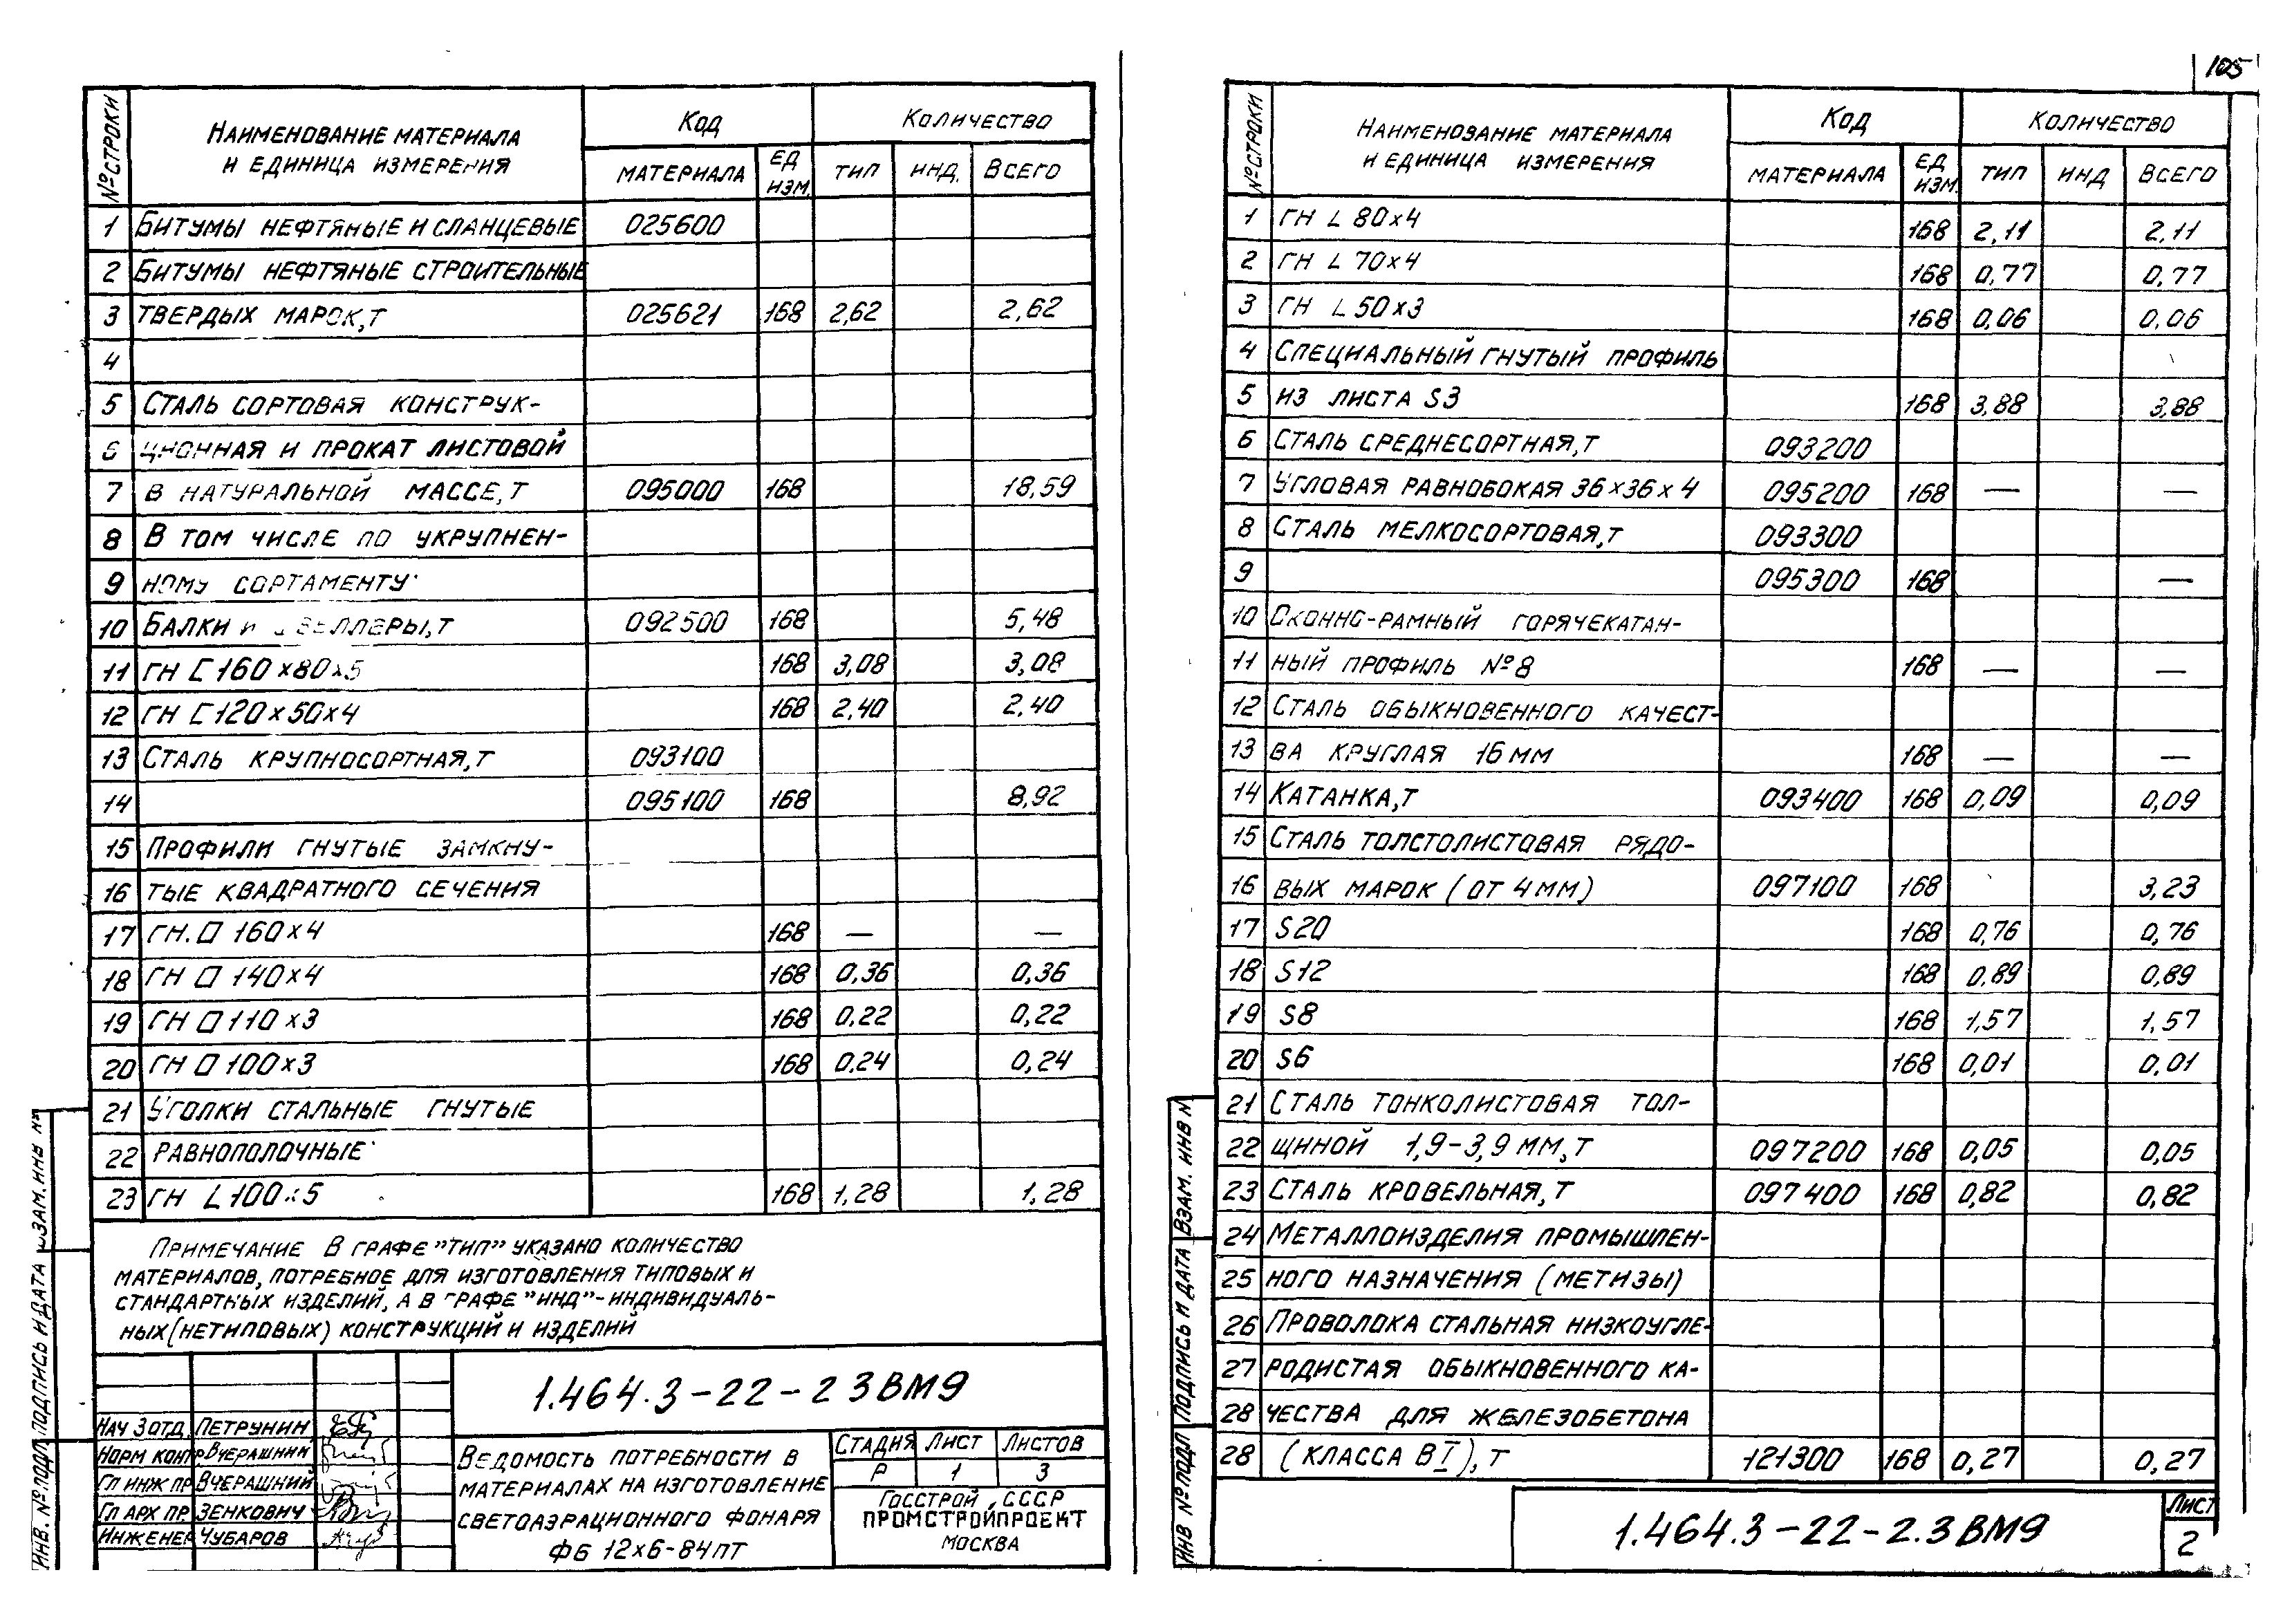 105
№ СТРОКИ
НАИМЕНОВАНИЕ МАТЕРИАЛА
И ЕДИНИЦА ИЗМЕРЕНИЯ
КОД
КОЛИЧЕСТВО
МАТЕРИАЛА
ЕД
ИЗМ.
ТИП
ИНД.
ВСЕГО
1 БИТУМЫ НЕФТЯНЫЕ И СЛАНЦЕВЫЕ 025600
2 БИТУМЫ НЕФТЯНЫЕ СТРОИТЕЛЬНЫЕ
3 ТВЕРДЫХ МАРОК, Т 025621 168 2,62 2,62
4
5 СТАЛЬ СОРТОВАЯ КОНСТРУК-
6 ЦИОННАЯ И ПРОКАТ ЛИСТОВОЙ
7 В НАТУРАЛЬНОЙ МАССЕ, Т 095000 168 18,59
8 В ТОМ ЧИСЛЕ ПО УКРУПНЕН-
9 НОМУ СОРТАМЕНТУ:
10 БАЛКИ И ШВЕЛЛЕРЫ, Т 092500 168 5,48
11 ГН [ 160×80×5 168 3,08 3,08
12 ГН [ 120×50×4 168 2,40 2,40
13 СТАЛЬ КРУПНОСОРТНАЯ, Т 093100
14 095100 168 8,92
15 ПРОФИЛИ ГНУТЫЕ ЗАМКНУ-
16 ТЫЕ КВАДРАТНОГО СЕЧЕНИЯ
17 ГН. □ 160×4 168 — —
18 ГН □ 140×4 168 0,36 0,36
19 ГН □ 110×3 168 0,22 0,22
20 ГН □ 100×3 168 0,24 0,24
21 УГОЛКИ СТАЛЬНЫЕ ГНУТЫЕ
22 РАВНОПОЛОЧНЫЕ:
23 ГН L 100×5 168 1,28 1,28
ПРИМЕЧАНИЕ В ГРАФЕ "ТИП" УКАЗАНО КОЛИЧЕСТВО
МАТЕРИАЛОВ, ПОТРЕБНОЕ ДЛЯ ИЗГОТОВЛЕНИЯ ТИПОВЫХ И
СТАНДАРТНЫХ ИЗДЕЛИЙ, А В ГРАФЕ "ИНД"-ИНДИВИДУАЛЬ-
НЫХ (НЕТИПОВЫХ) КОНСТРУКЦИЙ И ИЗДЕЛИЙ
1.464.3-22-2 3ВМ9
НАЧ ЗОТД ПЕТРУНИН
НОРМ КОНТР ВЧЕРАШНИЙ
ГЛ ИНЖ ПР ВЧЕРАШНИЙ
ГЛ АРХ ПР ЗЕНКОВИЧ
ИНЖЕНЕР ЧУБАРОВ
ВЕДОМОСТЬ ПОТРЕБНОСТИ В
МАТЕРИАЛАХ НА ИЗГОТОВЛЕНИЕ
СВЕТОАЭРАЦИОННОГО ФОНАРЯ
ФБ 12×6-84ПТ
СТАДИЯ ЛИСТ ЛИСТОВ
Р 1 3
ГОССТРОЙ СССР
ПРОМСТРОЙПРОЕКТ
МОСКВА
ИНВ. № ПОДЛ ПОДПИСЬ И ДАТА ВЗАМ. ИНВ №
№ СТРОКИ
НАИМЕНОВАНИЕ МАТЕРИАЛА
И ЕДИНИЦА ИЗМЕРЕНИЯ
КОД
КОЛИЧЕСТВО
МАТЕРИАЛА
ЕД
ИЗМ.
ТИП
ИНД
ВСЕГО
1 ГН L 80×4 168 2,11 2,11
2 ГН L 70×4 168 0,77 0,77
3 ГН L 50×3 168 0,06 0,06
4 СПЕЦИАЛЬНЫЙ ГНУТЫЙ ПРОФИЛЬ
5 ИЗ ЛИСТА S3 168 3,88 3,88
6 СТАЛЬ СРЕДНЕСОРТНАЯ, Т 093200
7 УГЛОВАЯ РАВНОБОКАЯ 36×36×4 095200 168 — —
8 СТАЛЬ МЕЛКОСОРТОВАЯ, Т 093300
9 095300 168 —
10 ОКОННО-РАМНЫЙ ГОРЯЧЕКАТАН-
11 НЫЙ ПРОФИЛЬ №8 168 — —
12 СТАЛЬ ОБЫКНОВЕННОГО КАЧЕСТ-
13 ВА КРУГЛАЯ 16 ММ 168 — —
14 КАТАНКА, Т 093400 168 0,09 0,09
15 СТАЛЬ ТОЛСТОЛИСТОВАЯ РЯДО-
16 ВЫХ МАРОК (ОТ 4 ММ) 097100 168 3,23
17 S20 168 0,76 0,76
18 S12 168 0,89 0,89
19 S8 168 1,57 1,57
20 S6 168 0,01 0,01
21 СТАЛЬ ТОНКОЛИСТОВАЯ ТОЛ-
22 ЩИНОЙ 1,9-3,9 ММ, Т 097200 168 0,05 0,05
23 СТАЛЬ КРОВЕЛЬНАЯ, Т 097400 168 0,82 0,82
24 МЕТАЛЛОИЗДЕЛИЯ ПРОМЫШЛЕН-
25 НОГО НАЗНАЧЕНИЯ (МЕТИЗЫ)
26 ПРОВОЛОКА СТАЛЬНАЯ НИЗКОУГЛЕ-
27 РОДИСТАЯ ОБЫКНОВЕННОГО КА-
28 ЧЕСТВА ДЛЯ ЖЕЛЕЗОБЕТОНА
28 (КЛАССА ВI), Т 121300 168 0,27 0,27
1.464.3-22-2.3ВМ9
ЛИСТ
2
ИНВ № ПОДЛ ПОДПИСЬ И ДАТА ВЗАМ. ИНВ №